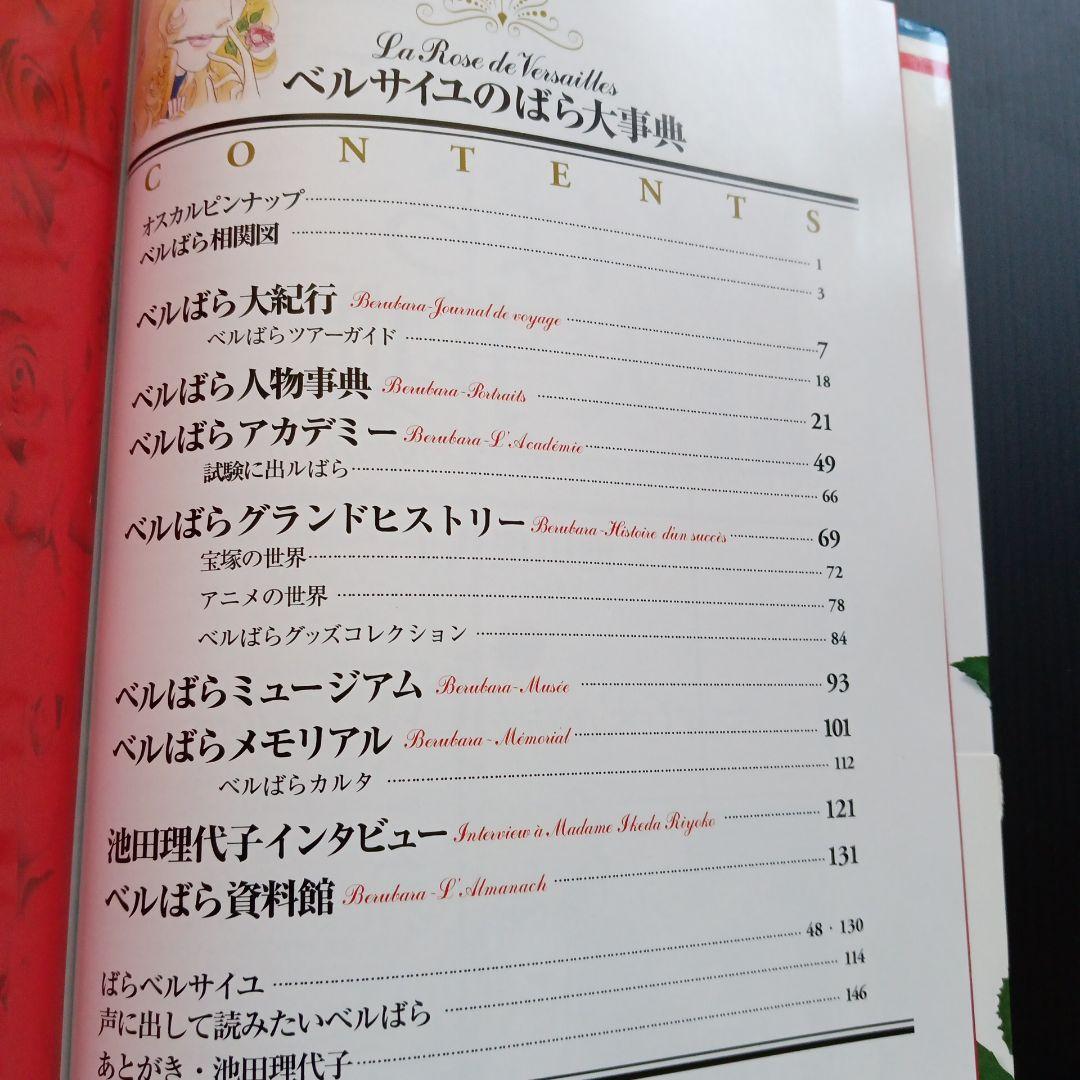 La Rose de Versailles
ベルサイユのばら大事典
CONTENTS
オスカルピンナップ 1
ベルばら相関図 3
ベルばら大紀行 Berubara-Journal de voyage 7
ベルばらツアーガイド 18
ベルばら人物事典 Berubara-Portraits 21
ベルばらアカデミー Berubara-L'Académie 49
試験に出ルばら 66
ベルばらグランドヒストリー Berubara-Histoire d'un succès 69
宝塚の世界 72
アニメの世界 78
ベルばらグッズコレクション 84
ベルばらミュージアム Berubara-Musée 93
ベルばらメモリアル Berubara-Mémorial 101
ベルばらカルタ 112
池田理代子インタビュー Interview à Madame Ikeda Riyoko 121
ベルばら資料館 Berubara-L'Almanach 131
ばらベルサイユ 48・130
声に出して読みたいベルばら 114
あとがき・池田理代子 146